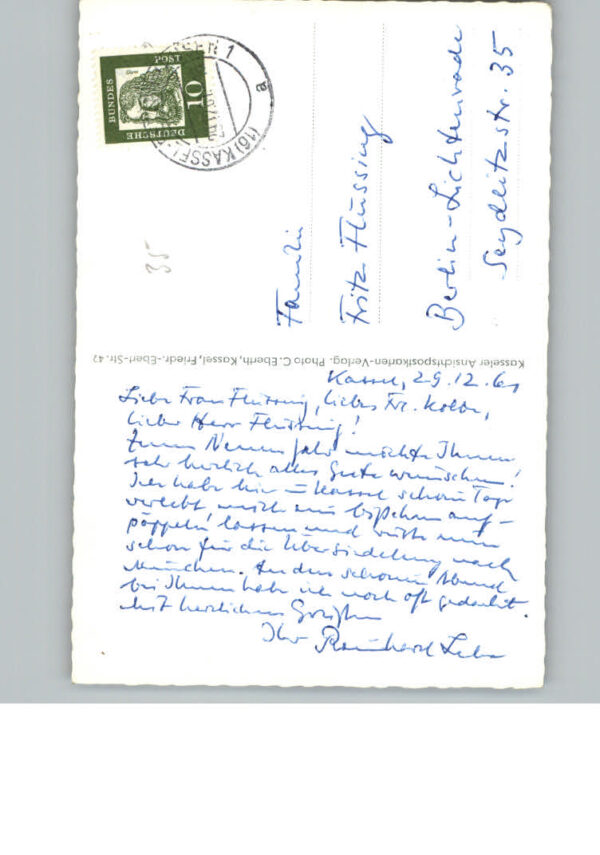 Kassel, 29.12.61
Liebe Frau Flüssing, liebes Frl. Kolbe,
lieber Herr Flüssing!
Zum Neuen Jahr möchte Ihnen
sehr herzlich alles Gute wünschen!
Ich habe hier in Kassel schöne Tage
verlebt, mich ein bißchen auf-
päppeln lassen und rüste nun
schon für die Übersiedelung nach
München. An den schönen Abend
bei Ihnen habe ich noch oft gedacht.
Mit herzlichen Grüßen
Ihr Reinhard
Familie
Fritz Flüssing
Berlin-Lichtenrade
Seydlitzstr. 35
Kasseler Ansichtspostkarten-Verlag. Photo C. Eberth, Kassel, Friedr.-Ebert-Str. 47
DEUTSCHE
BUNDES
POST
10
(16) KASSEL 1
a
35